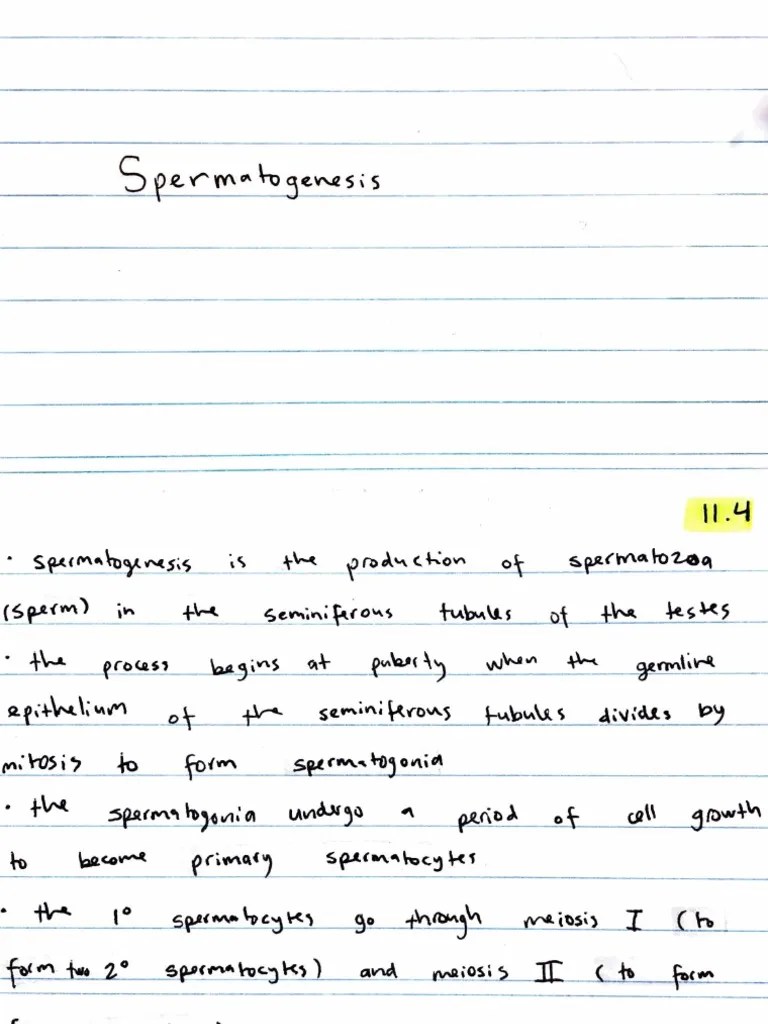 Spermatogenesis
11.4
· spermatogenesis is the production of spermatozoa
(sperm) in the seminiferous tubules of the testes
· the process begins at puberty when the germline
epithelium of the seminiferous tubules divides by
mitosis to form spermatogonia
· the spermatogonia undergo a period of cell growth
to become primary spermatocytes
· the 1° spermatocytes go through meiosis I (to
form two 2° spermatocytes) and meiosis II (to form